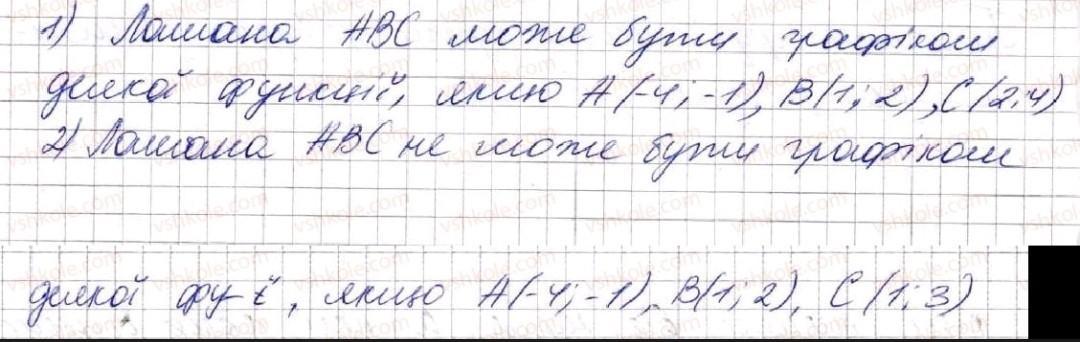 1) Ламана ABC може бути графіком
деякої функції, якщо A(-4; -1), B(1; 2), C(2; 4)
2) Ламана ABC не може бути графіком
деякої фу-ї, якщо A(-4; -1), B(1; 2), C(1; 3)